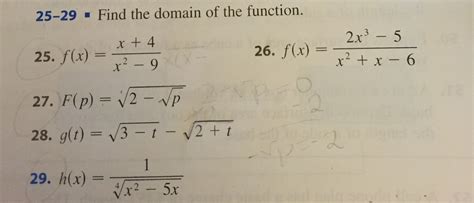 25–29 ■ Find the domain of the function.
25. f(x) = (x + 4)/(x² − 9)
26. f(x) = (2x³ − 5)/(x² + x − 6)
27. F(p) = √(2 − √p)
28. g(t) = √(3 − t) − √(2 + t)
29. h(x) = 1/∜(x² − 5x)